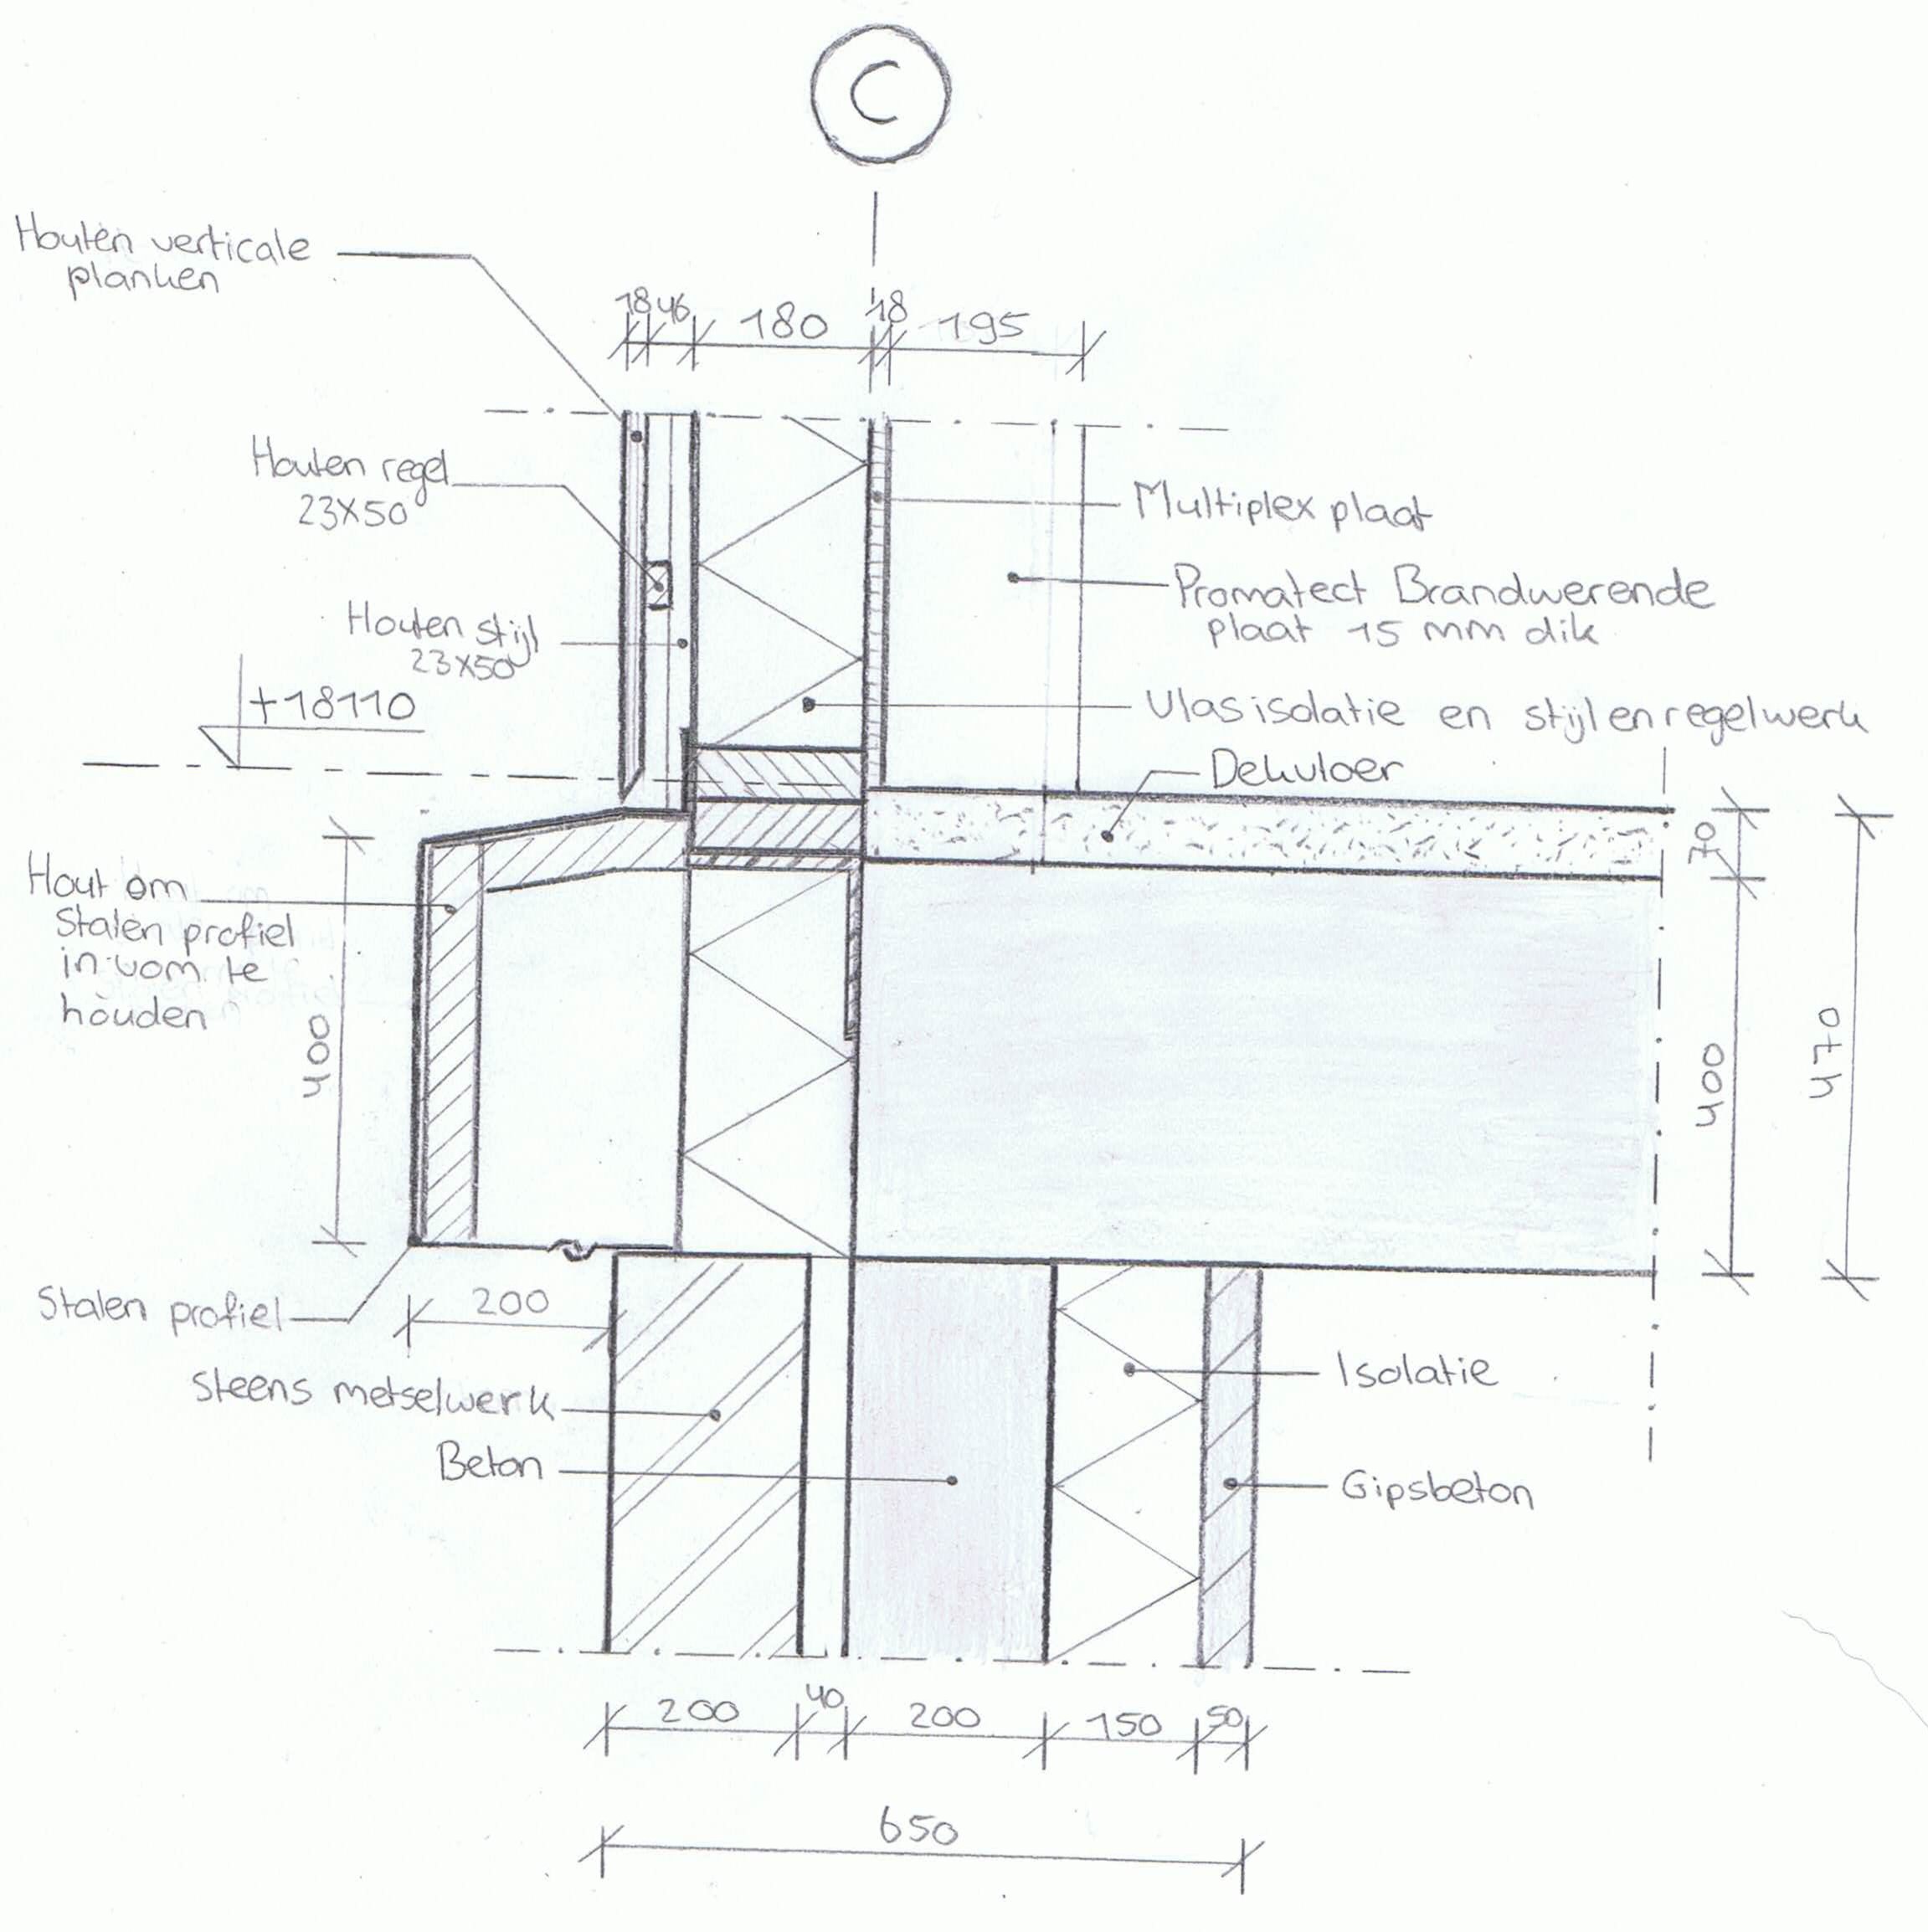 C
Houten verticale
planken
18 46 180 18 195
Houten regel
23X50
Multiplex plaat
Promatect Brandwerende
plaat 15 mm dik
Houten stijl
23X50
+18110
Vlasisolatie en stijl en regelwerk
Dekvloer
70
Hout om
Stalen profiel
in vorm te
houden
400
400
470
Stalen profiel
200
steens metselwerk
Isolatie
Beton
Gipsbeton
200 40 200 150 50
650